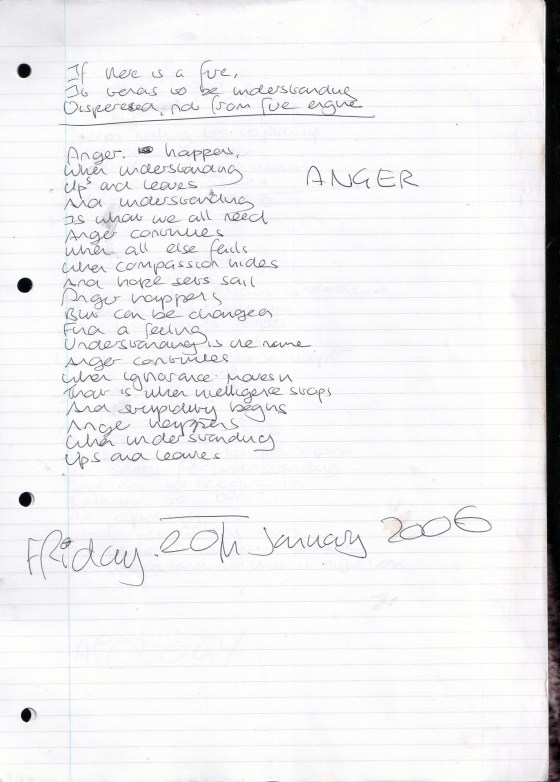 If there is a fire,
It needs to be understanding
Dispersed, not from fire engine
Anger. happens,
When understanding
Ups and leaves
ANGER
And understanding
Is what we all need
Anger continues
When all else fails
When compassion hides
And hope sets sail
Anger happens
But can be changed
Find a feeling
Understanding is the name
Anger continues
When ignorance moves in
That is when intelligence stops
And stupidity begins
Anger happens
When understanding
Ups and leaves
FRiday. 20th January 2006